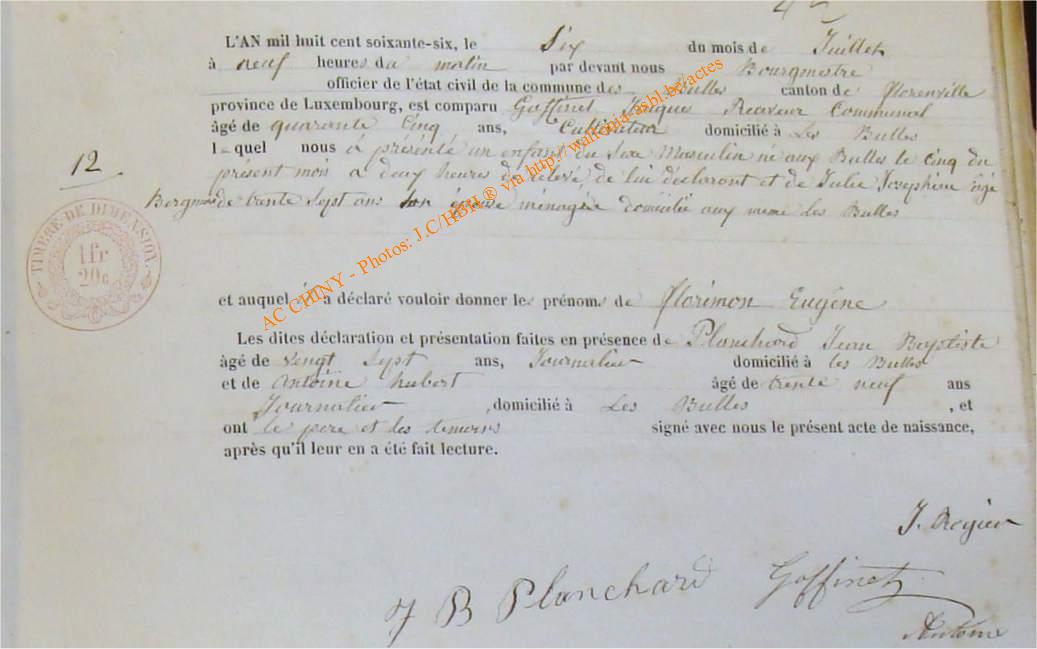 L'AN mil huit cent soixante-six, le Six du mois de Juillet
à neuf heures du matin par devant nous Bourgmestre
officier de l'état civil de la commune des Bulles canton de florenville
province de Luxembourg, est comparu Goffinet Jaques Receveur Communal
âgé de quarante Cinq ans, Cultivateur domicilié à Les Bulles
lequel nous a présenté un enfant du Sexe Masculin né aux Bulles le cinq du
12
présent mois a deux heures de relevé, de lui déclarant et de Julie Josephine agé
de trente Sept ans Son épouse ménagère domicilié aux meme les Bulles
TIMBRE DE DIMENSION.
1 fr
20 c
et auquel il a déclaré vouloir donner les prénoms de florimon Eugène
Les dites déclaration et présentation faites en présence de Planchard Jean Baptiste
âgé de vingt Sept ans, Journalier domicilié à les Bulles
et de Antoine hubert âgé de trente neuf ans
Journalier , domicilié à Les Bulles , et
ont le pere et les temoins signé avec nous le présent acte de naissance,
après qu'il leur en a été fait lecture.
J. B Planchard Goffinet
Antoine
AC CHINY - Photos: J.C/HBH ® via http://wallonia-asbl.be/actes